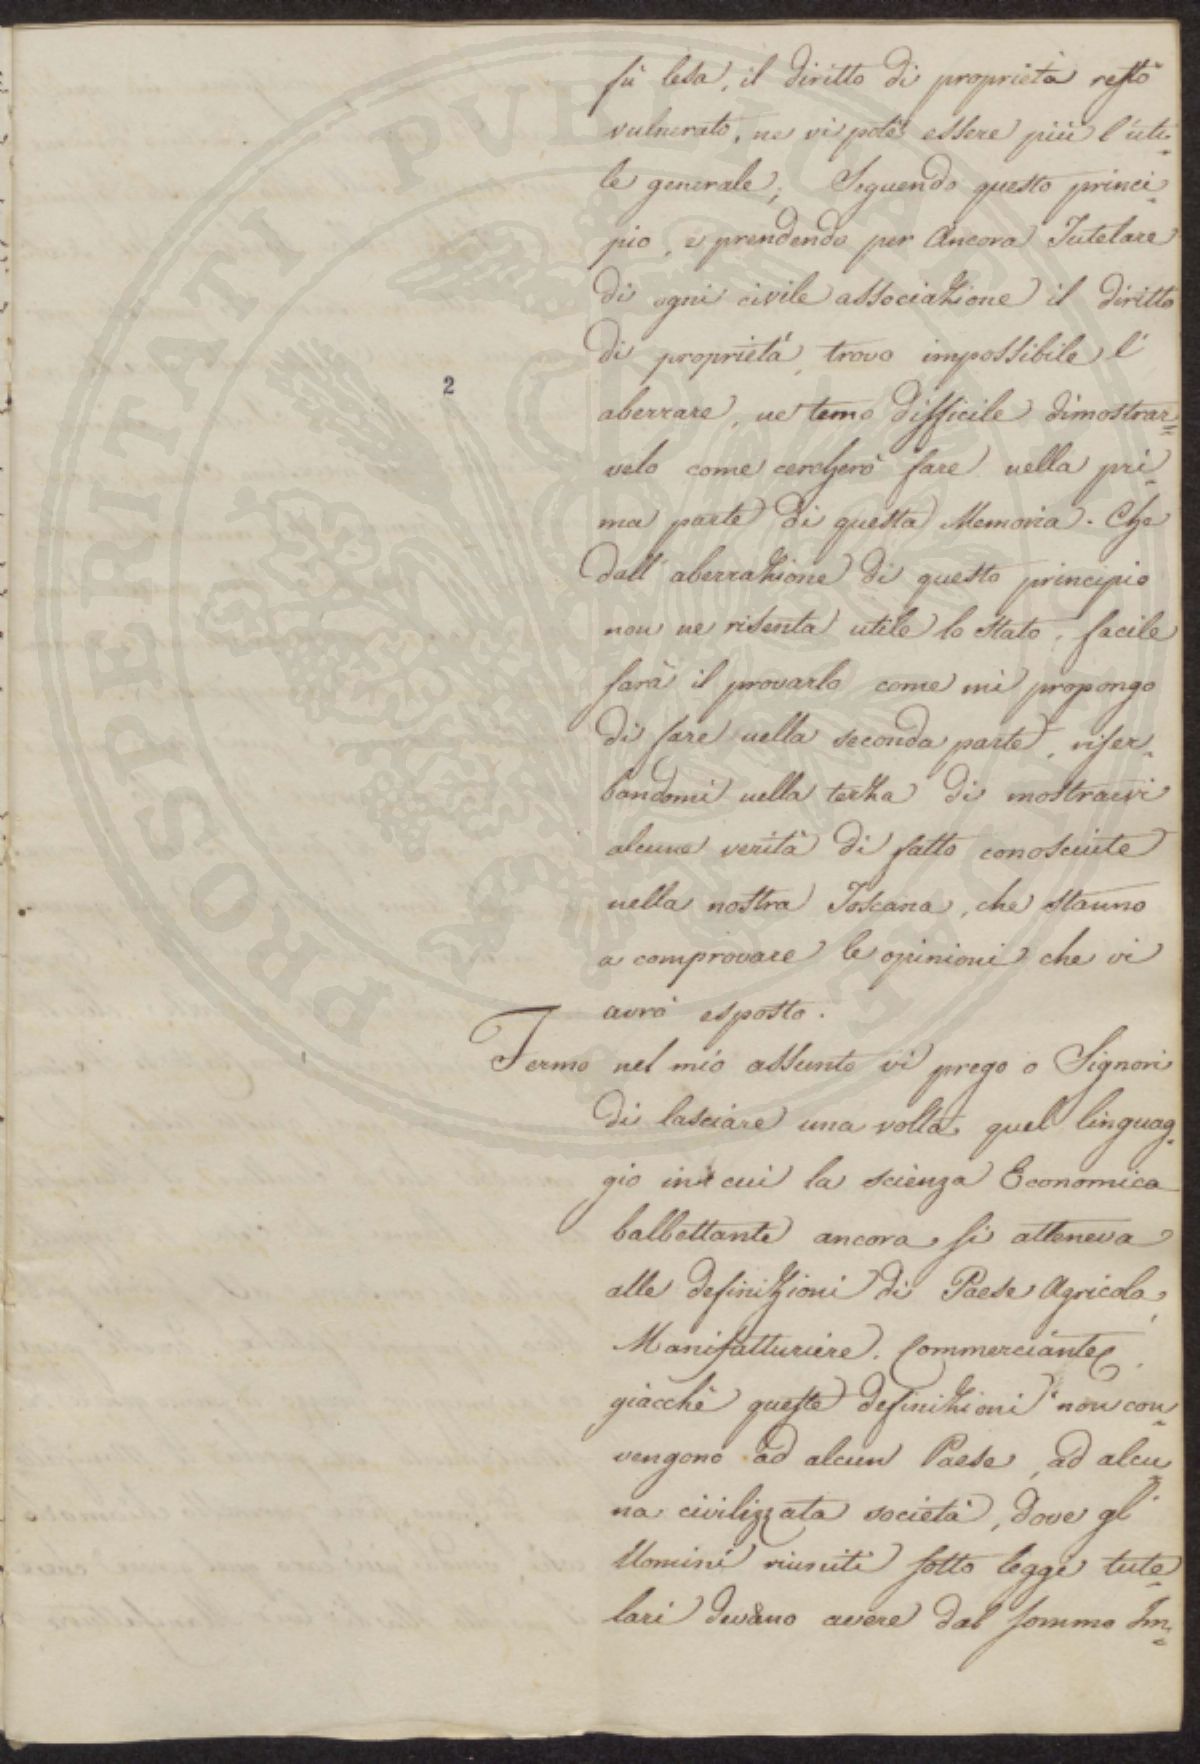 fù lesa, il diritto di proprietà restò
vulnerato, ne vi potè essere più l'uti=
le generale; Seguendo questo princi=
pio, e prendendo per Ancora Tutelare
di ogni civile associazione il diritto
di proprietà, trovo impossibile l'
aberrare, ne temo difficile dimostrar=
velo come cercherò fare nella pri=
ma parte di questa Memoria. Che
dall'aberrazione di questo principio
non ne risenta utile lo Stato, facile
sarà il provarlo come mi propongo
di fare nella seconda parte, riser=
bandomi nella terza di mostrarvi
alcune verità di fatto conosciute
nella nostra Toscana, che stanno
a comprovare le opinioni che vi
avrò esposto.
Fermo nel mio assunto vi prego o Signori
di lasciare una volta quel linguag=
gio in cui la scienza Economica
balbettante ancora si atteneva
alle definizioni di Paese Agricola,
Manifatturiere, Commerciante,
giacchè queste definizioni non con=
vengono ad alcun Paese, ad alcu=
na civilizzata società, dove gl'
Uomini riuniti sotto leggi tute=
lari devano avere dal sommo Im=
2
PROSPERITATI PUBLICAE